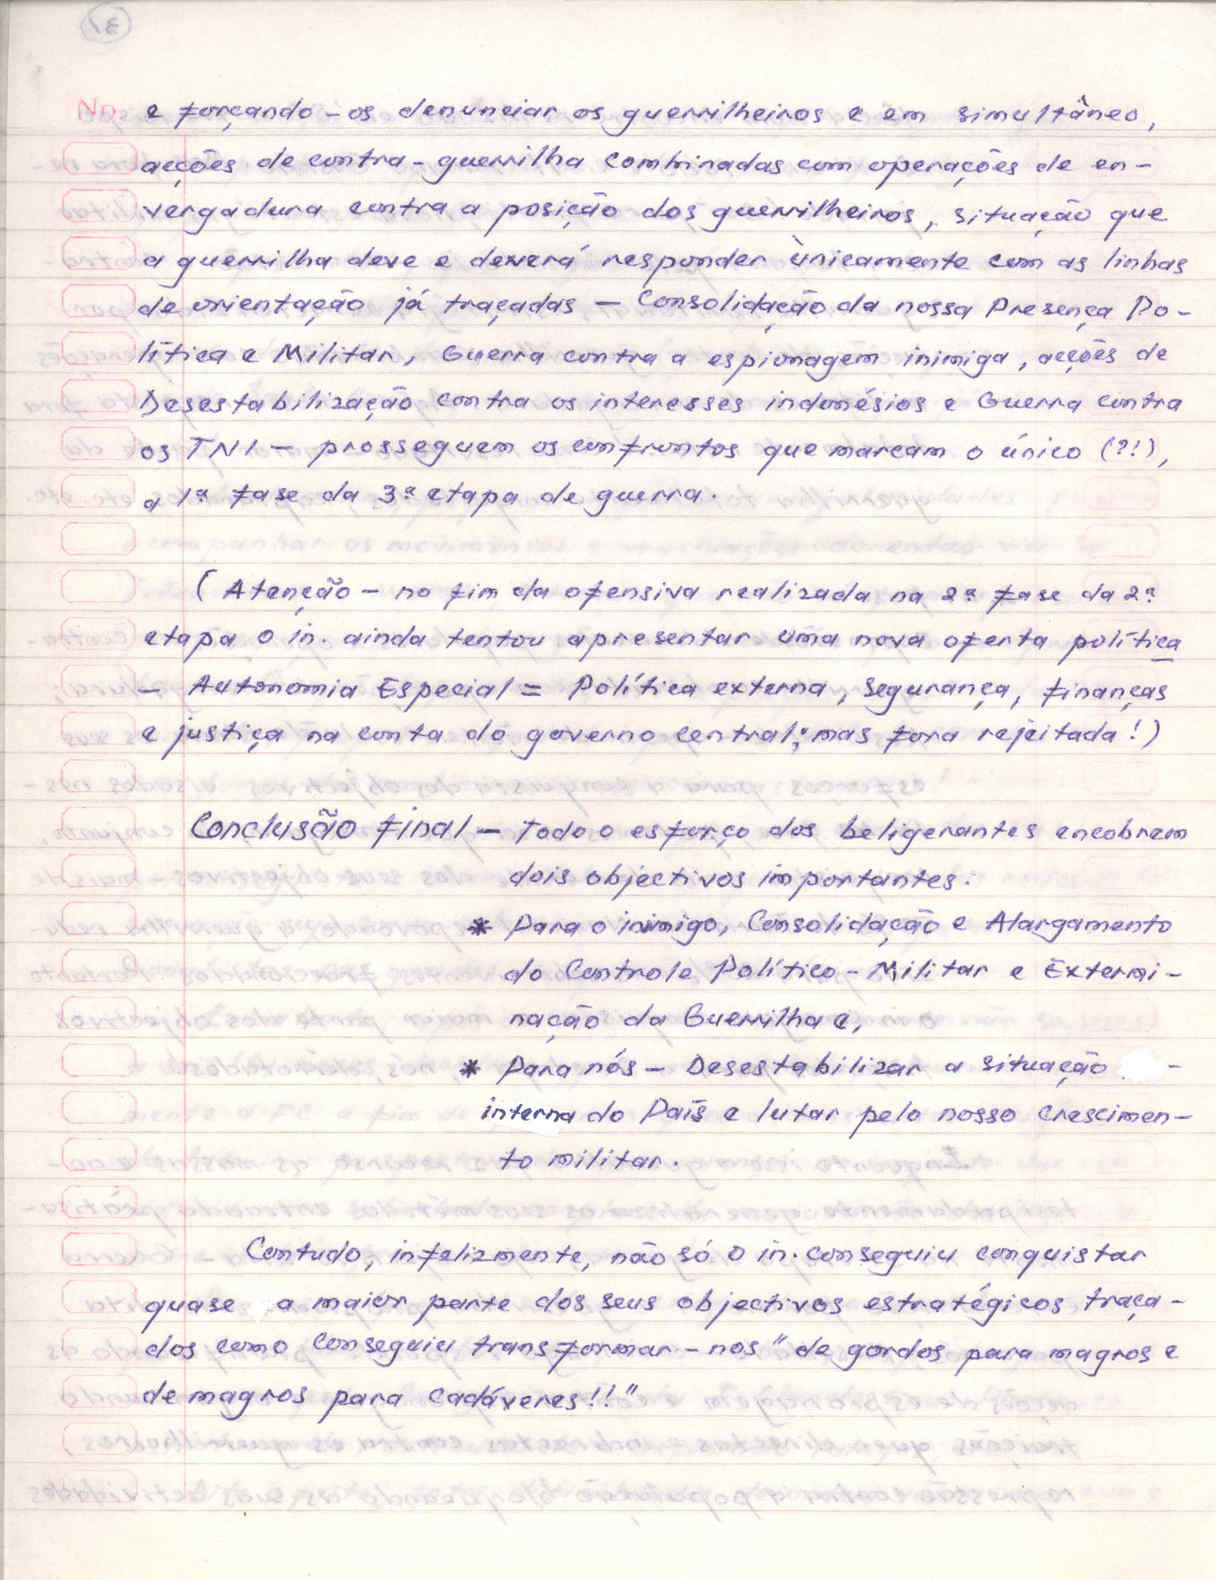 e forçando-os denunciar os guerrilheiros e em simultâneo,
acções de contra-guerrilha combinadas com operações de en-
vergadura contra a posição dos guerrilheiros, situação que
a guerrilha deve e deverá responder ùnicamente com as linhas
de orientação já traçadas - Consolidação da nossa Presença Po-
lítica e Militar, Guerra contra a espionagem inimiga, acções de
Desestabilização contra os interesses indonésios e Guerra contra
os TNI - prosseguem os confrontos que marcam o único (?!),
a 1ª fase da 3ª etapa de guerra.
(Atenção - no fim da ofensiva realizada na 2ª fase da 2ª
etapa o in. ainda tentou apresentar uma nova oferta política
- Autonomia Especial = Política externa, segurança, finanças
e justiça na conta do governo central; mas fora rejeitada!)
Conclusão final - Todo o esforço dos beligerantes encobrem
dois objectivos importantes:
* Para o inimigo, Consolidação e Alargamento
do Controle Político-Militar e Extermi-
nação da Guerrilha e,
* Para nós - Desestabilizar a situação -
interna do País e lutar pelo nosso crescimen-
to militar.
Contudo, infelizmente, não só o in. conseguiu conquistar
quase a maior parte dos seus objectivos estratégicos traça-
dos como conseguiu transformar-nos "de gordos para magros e
de magros para cadáveres!!"